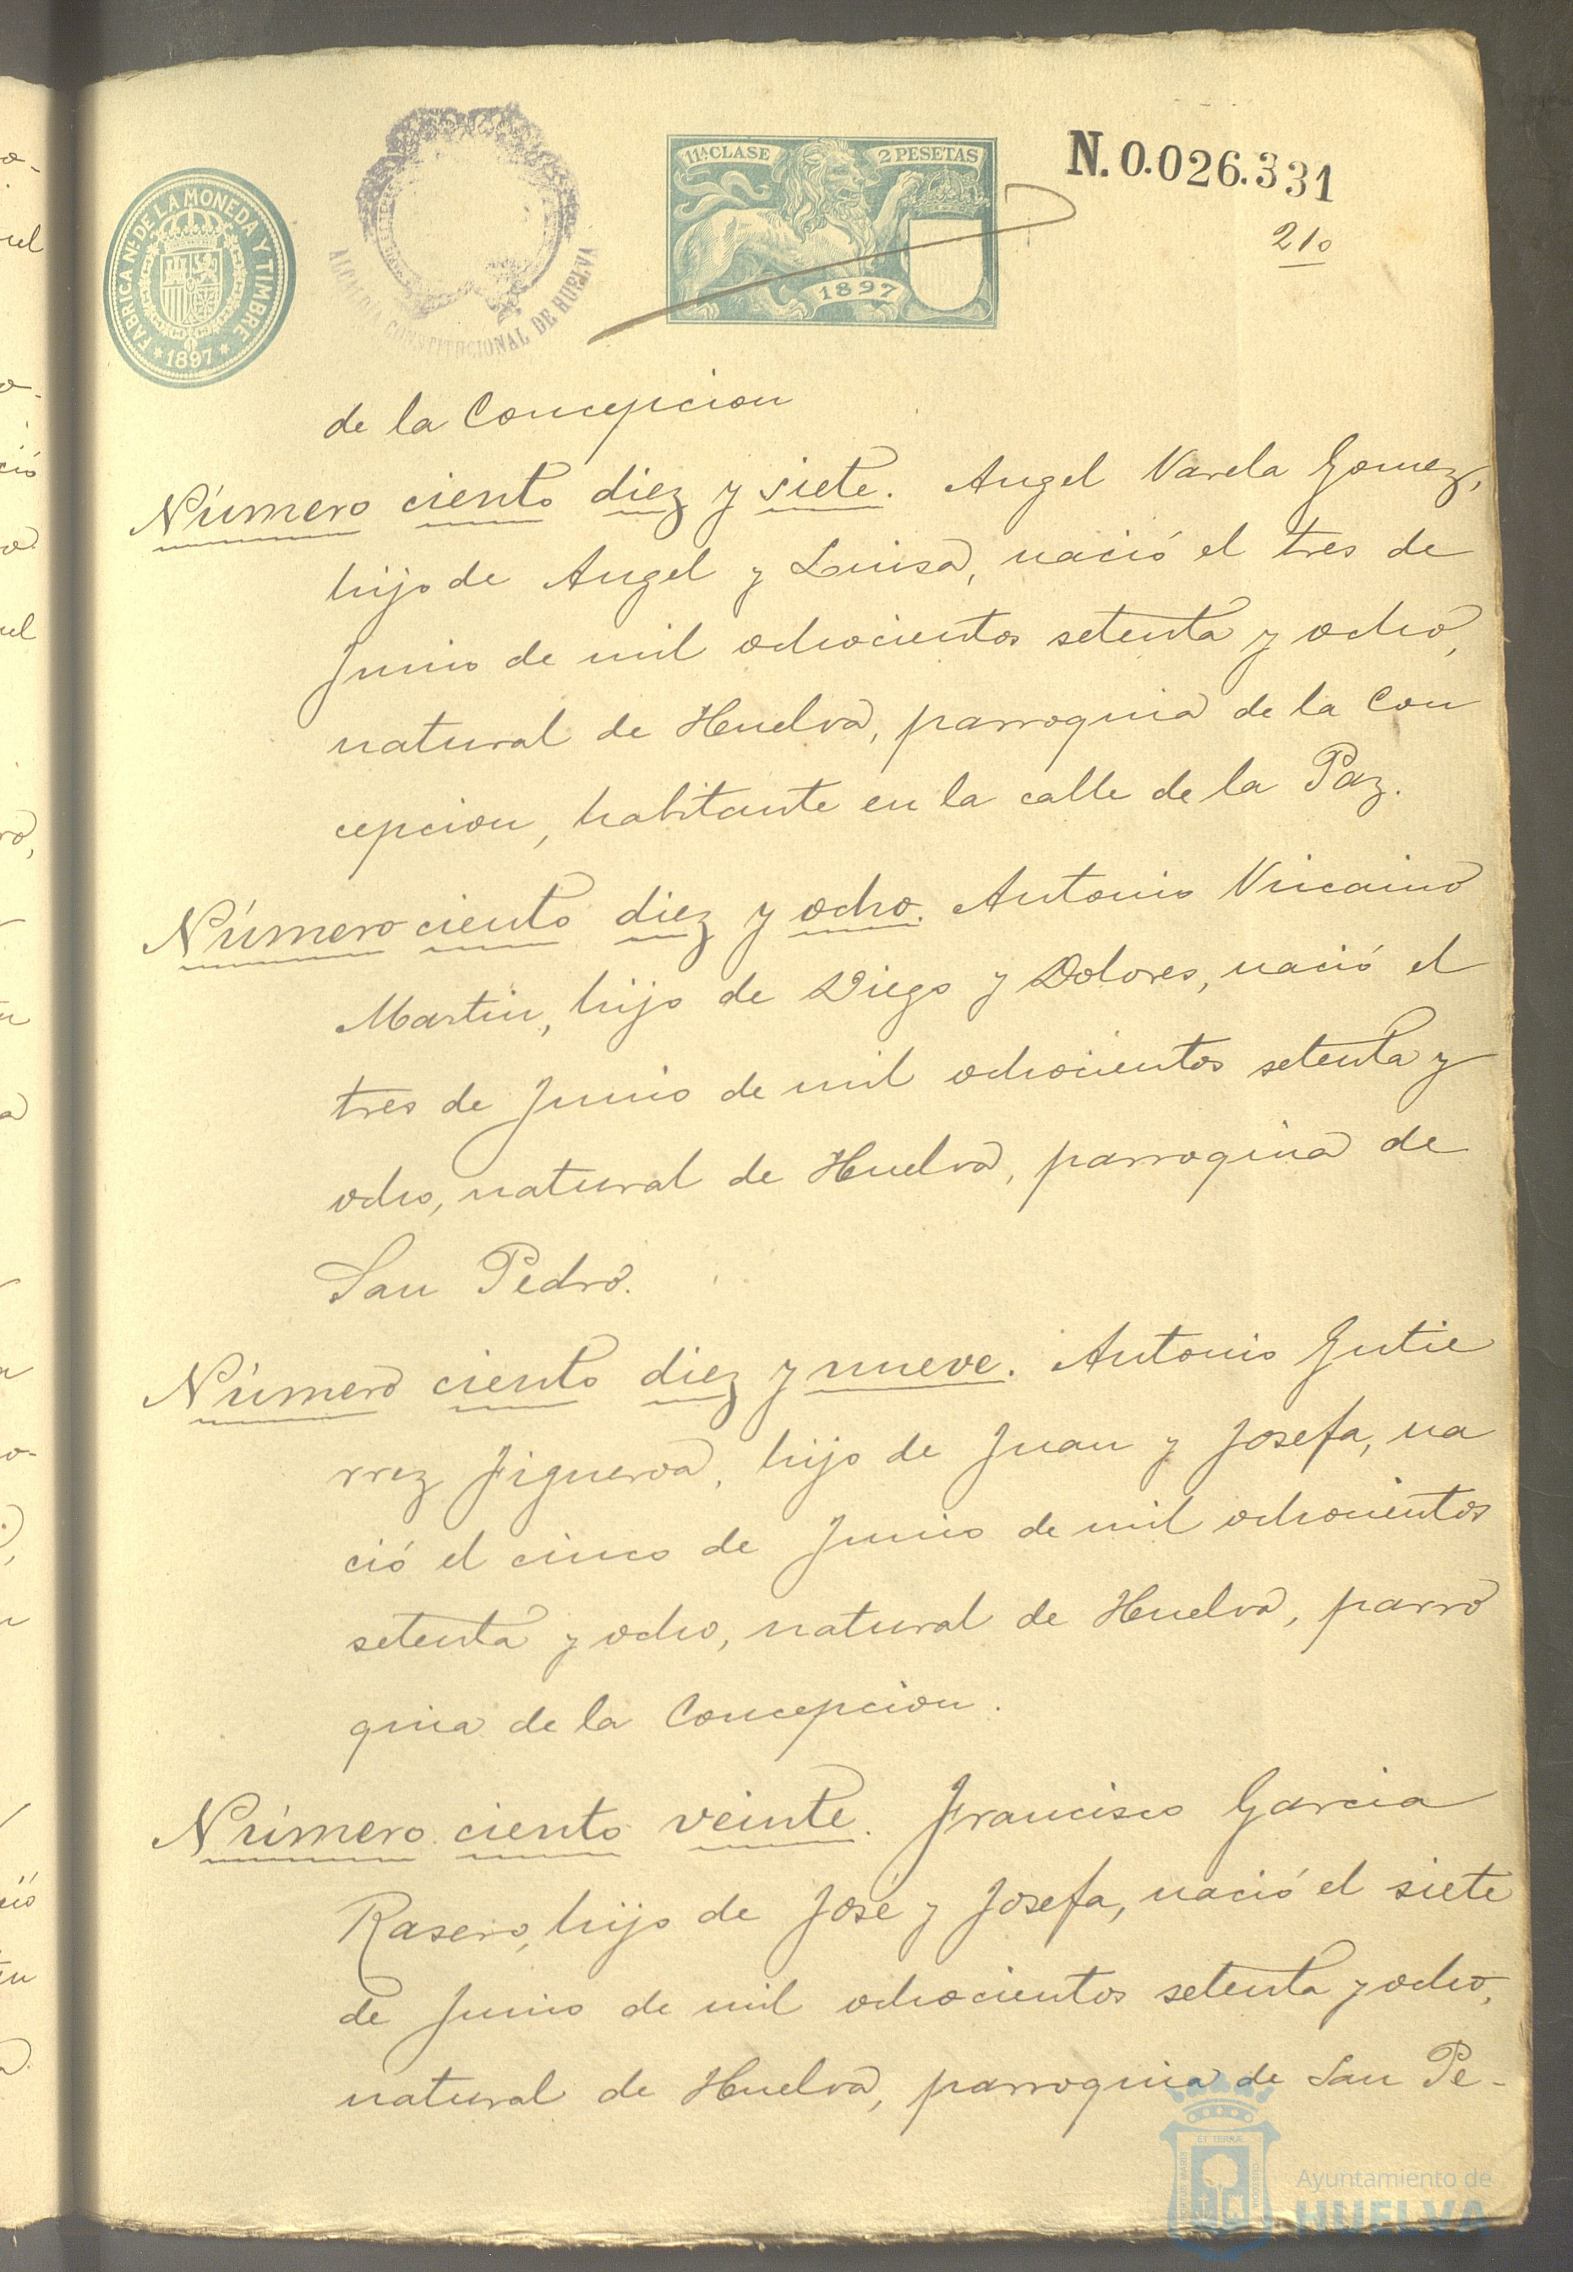 FABRICA Nl. DE LA MONEDA Y TIMBRE
* 1897 *
ALCALDIA CONSTITUCIONAL DE HUELVA
11ª CLASE
2 PESETAS
1897
N.0.026.331
210
de la Concepcion
Número ciento diez y siete. Angel Varela Gomez,
hijo de Angel y Luisa, nació el tres de
Junio de mil ochocientos setenta y ocho,
natural de Huelva, parroquia de la Con
cepcion, habitante en la calle de la Paz.
Número ciento diez y ocho. Antonio Vizcaino
Martin, hijo de Diego y Dolores, nació el
tres de Junio de mil ochocientos setenta y
ocho, natural de Huelva, parroquia de
San Pedro.
Número ciento diez y nueve. Antonio Gutie
rrez Figueroa, hijo de Juan y Josefa, na
ció el cinco de Junio de mil ochocientos
setenta y ocho, natural de Huelva, parro
quia de la Concepcion.
Número ciento veinte. Francisco Garcia
Rasero, hijo de José y Josefa, nació el siete
de Junio de mil ochocientos setenta y ocho,
natural de Huelva, parroquia de San Pe-
Ayuntamiento de
HUELVA